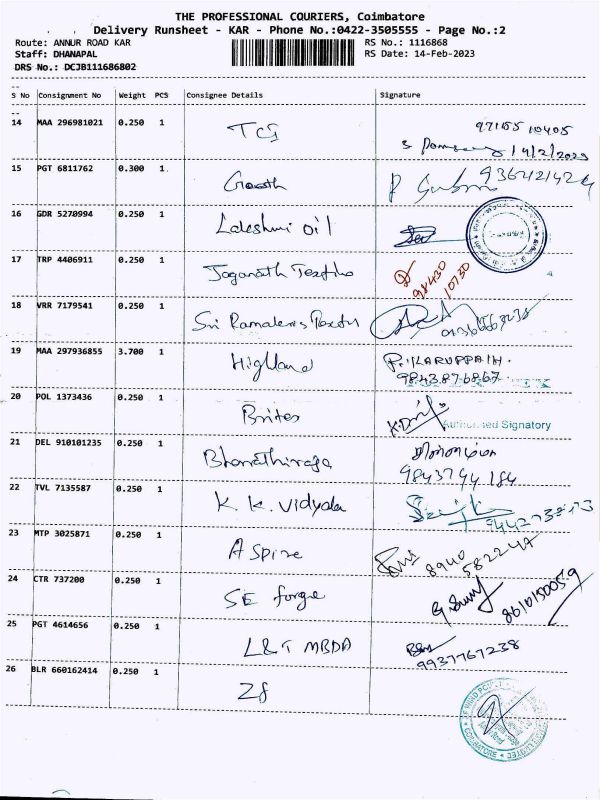 THE PROFESSIONAL COURIERS, Coimbatore
Delivery Runsheet - KAR - Phone No.:0422-3505555 - Page No.:2
Route: ANNUR ROAD KAR RS No.: 1116868
Staff: DHANAPAL RS Date: 14-Feb-2023
DRS No.: DCJB111686802
S No Consignment No Weight PCS Consignee Details Signature
14 MAA 296981021 0.250 1 TCI 97155 10405
14/2/2023
15 PGT 6811762 0.300 1
16 GDR 5270994 0.250 1 Lakshmi oil
17 TRP 4406911 0.250 1 98430
10730
18 VRR 7179541 0.250 1 Sri
19 MAA 297936855 3.700 1 Highland P. KARUPPAIH.
9843876867
20 POL 1373436 0.250 1 Brites Authorised Signatory
21 DEL 910101235 0.250 1 Bharathiraja
9843794184
22 TVL 7135587 0.250 1 K. K. Vidyala
23 MTP 3025871 0.250 1 Aspire 8940
582247
24 CTR 737200 0.250 1 SE forge 8610150059
25 PGT 4614656 0.250 1 L&T MBDA
9937767238
26 BLR 660162414 0.250 1 Zf
COIMBATORE